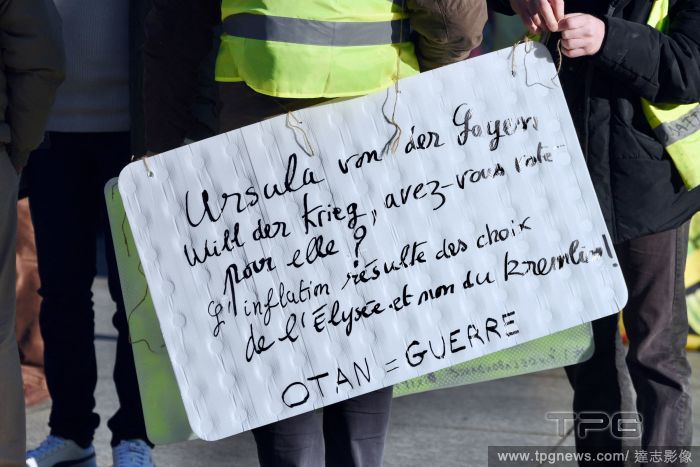 Ursula von der Leyen
Will der Krieg, avez-vous voté
pour elle ?
L'inflation résulte des choix
de l'Élysée et non du Kremlin !
OTAN = GUERRE
TPG
www.tpgnews.com/ 達志影像